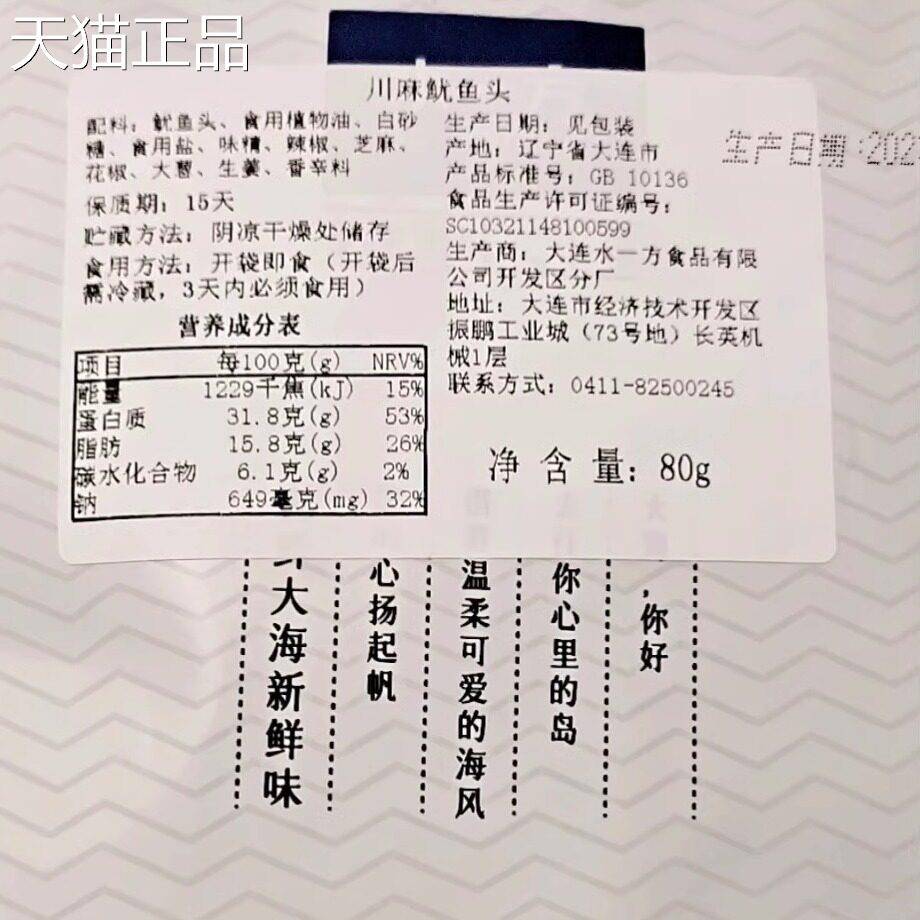 天猫正品
川麻鱿鱼头
配料：鱿鱼头、食用植物油、白砂
糖、食用盐、味精、辣椒、芝麻、
花椒、大葱、生姜、香辛料
保质期：15天
贮藏方法：阴凉干燥处储存
食用方法：开袋即食（开袋后
需冷藏，3天内必须食用）
营养成分表
项目 每100克(g) NRV%
能量 1229千焦(kJ) 15%
蛋白质 31.8克(g) 53%
脂肪 15.8克(g) 26%
碳水化合物 6.1克(g) 2%
钠 649毫克(mg) 32%
生产日期：见包装
产地：辽宁省大连市
产品标准号：GB 10136
食品生产许可证编号：
SC10321148100599
生产商：大连水一方食品有限
公司开发区分厂
地址：大连市经济技术开发区
振鹏工业城（73号地）长英机
械1层
联系方式：0411-82500245
净含量：80g
生产日期:202
，你好
你心里的岛
温柔可爱的海风
心扬起帆
大海新鲜味